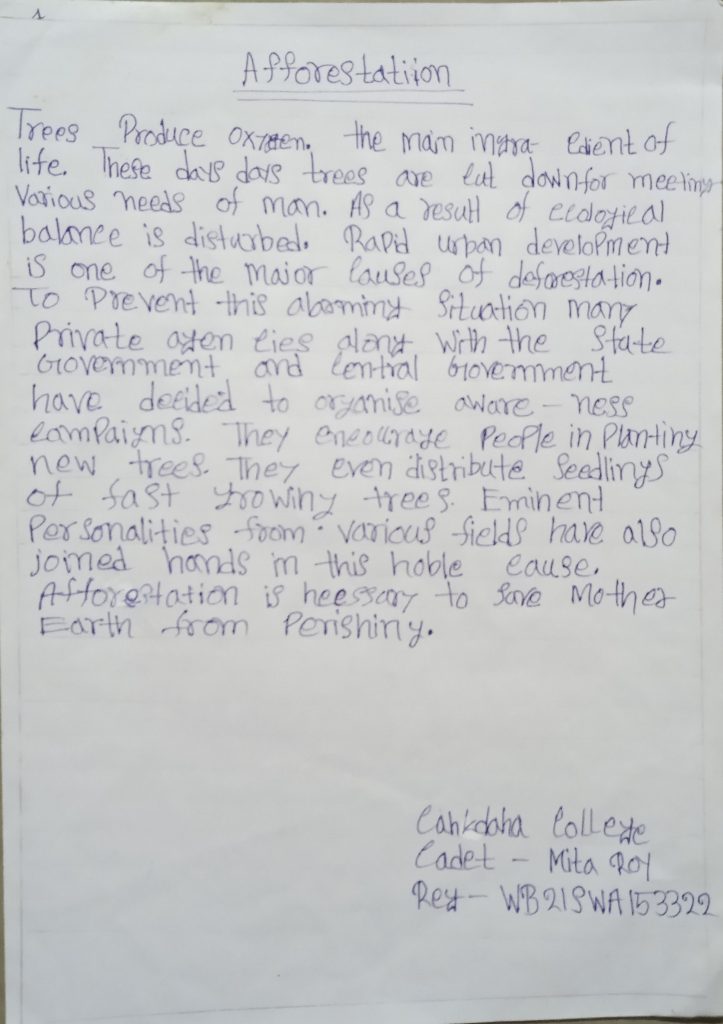 1
Afforestatiion
Trees Produce oxygen. the main ingra- edient of
life. These days days trees are cut down for meeting
Various needs of man. As a result of ecological
balance is disturbed. Rapid urban development
is one of the major causes of deforestation.
To Prevent this alarming situation many
Private agen cies along with the State
Government and Central Government
have decided to organise aware - ness
campaigns. They encourage People in Planting
new trees. They even distribute Seedlings
of fast growing trees. Eminent
Personalities from various fields have also
joined hands in this noble cause.
Afforestation is neessary to save Mother
Earth from Perishing.
Cahkdaha College
Cadet - Mita Roy
Reg - WB21SWA153322